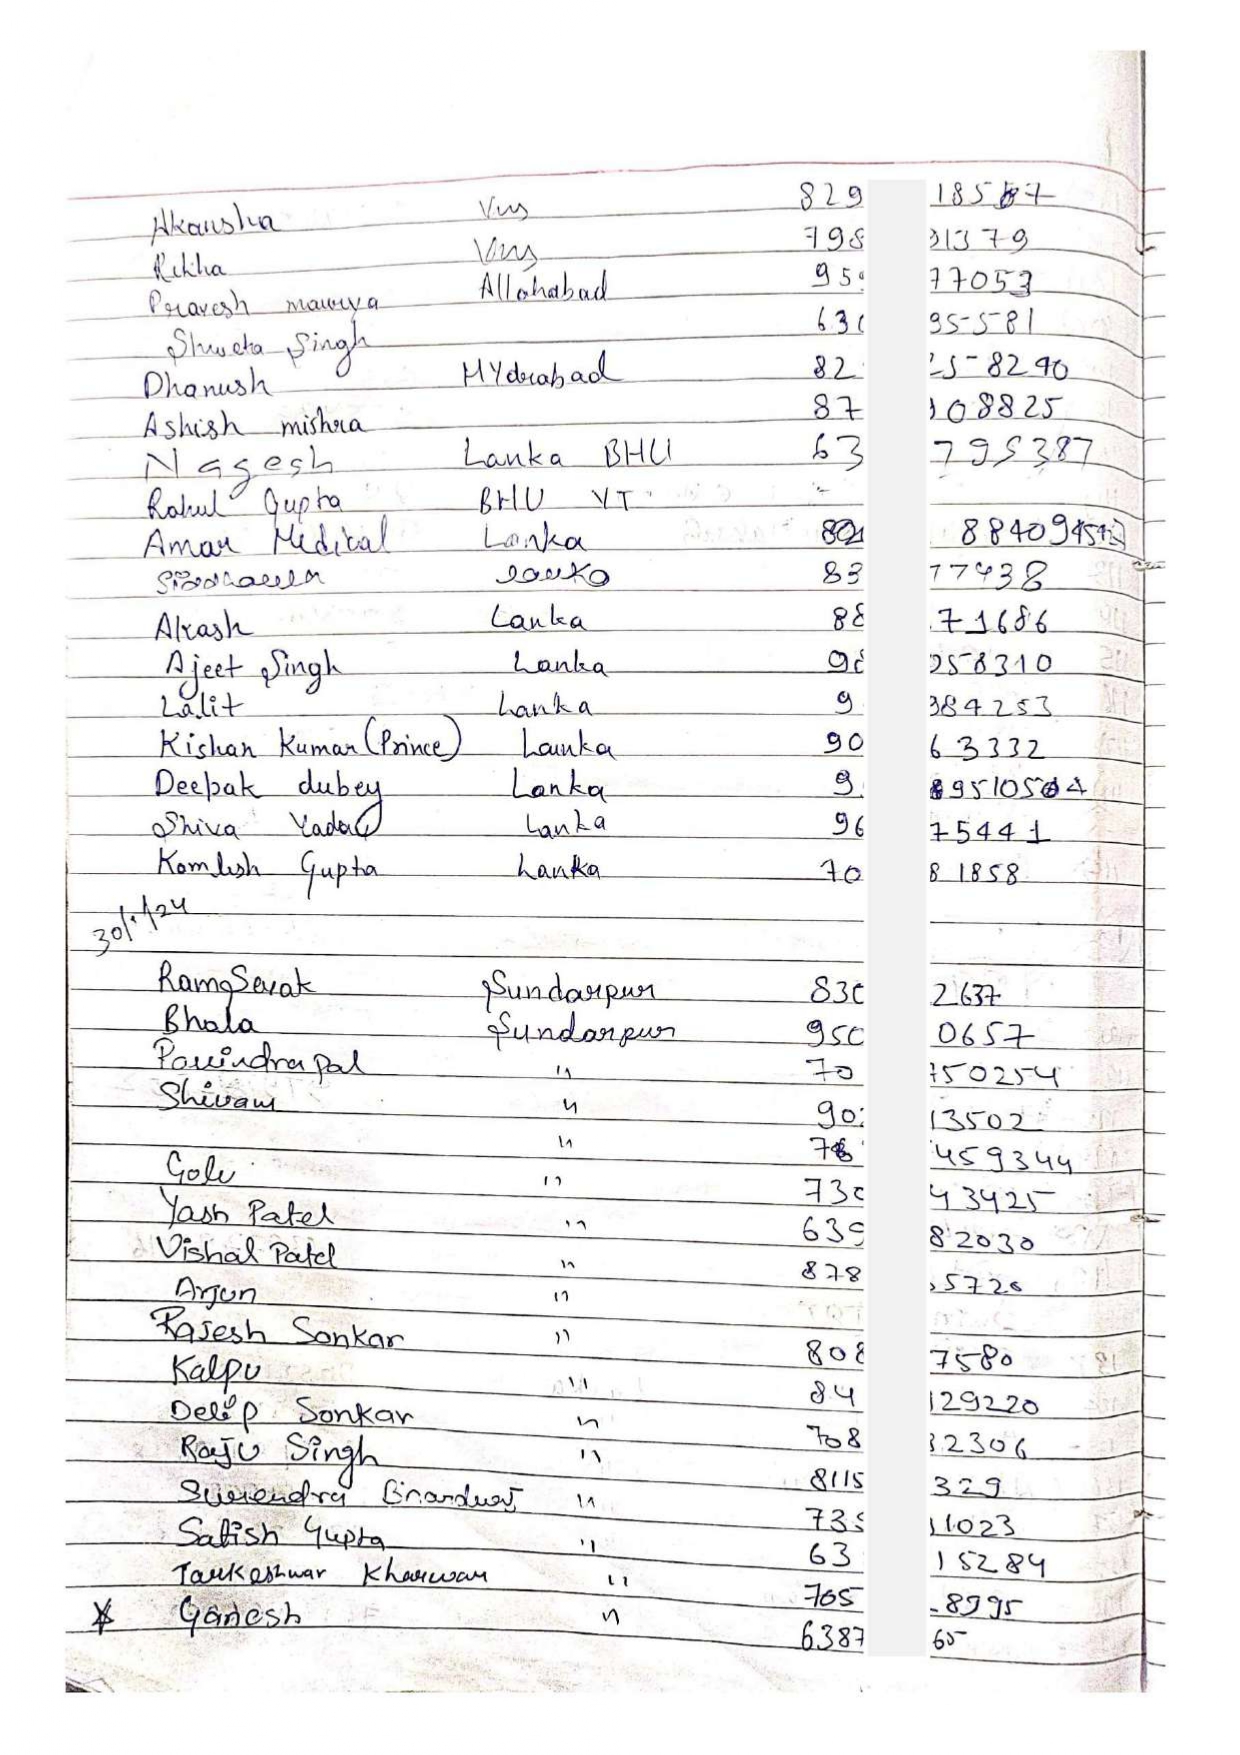 Akansha Vns 829 18587
Rekha Vns 798 91379
Pravesh maurya Allahabad 95 77053
Shweta Singh 630 95581
Dhanush HYderabad 82 25-8290
Ashish mishra 87 108825
Nagesh Lanka BHU 63 795387
Rahul Gupta BHU VT
Amar Medical Lanka 801 88409
lanka 83 77438
Akash Lanka 88 71686
Ajeet Singh Lanka 98 258310
Lalit Lanka 9 984253
Kishan Kumar (Prince) Launka 90 63332
Deepak dubey Lanka 9 89510504
Shiva Yadav Lanka 96 75441
Komlesh Gupta Lanka 70 81858
Ram Sevak Sundarpur 830 2637
Bhola Sundarpur 950 0657
Pal " 70 750254
Shivam " 90 13502
" 78 459344
Golu " 730 43425
Yash Patel " 639 82030
Vishal Patel " 878 5720
Arjun "
Rajesh Sonkar " 808 7580
Kalpu " 84 129220
Delip Sonkar " 708 32306
Raju Singh " 8115 329
Surendra " 735 11023
Satish Gupta " 63 15284
Tarkeshwar Kharwar " 705 8995
Ganesh " 6387 65